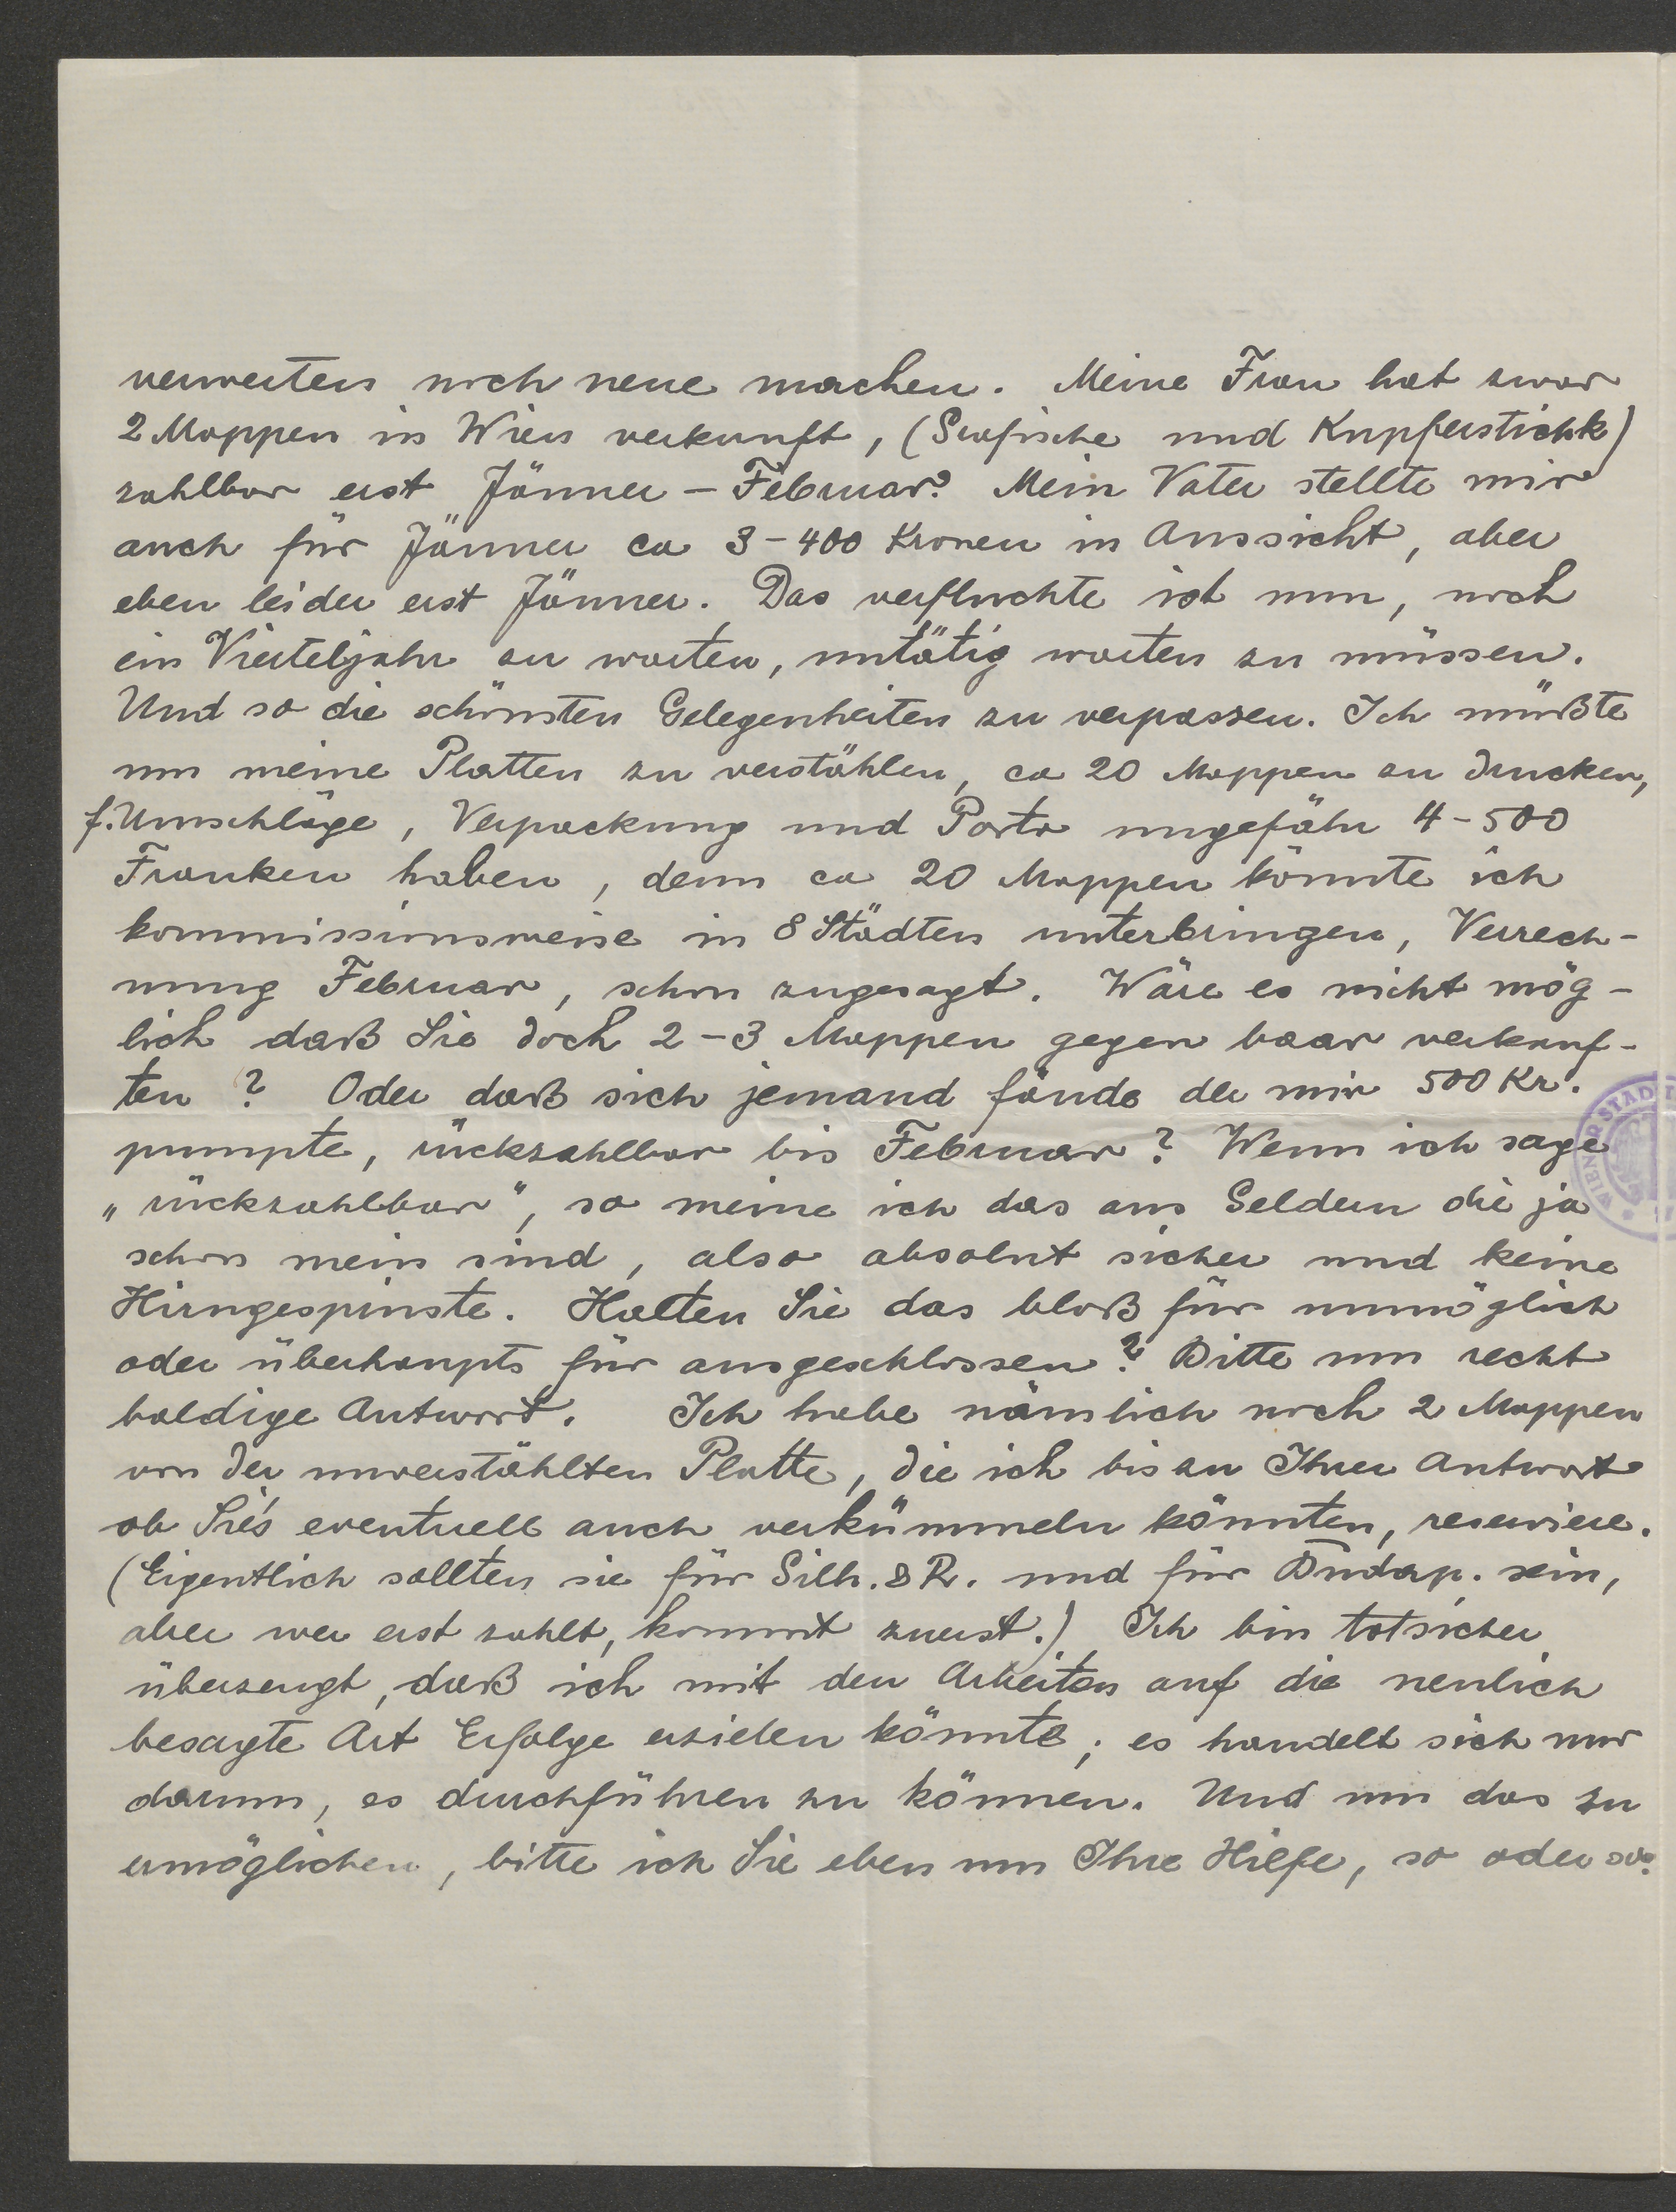 verwerten noch neue machen. Meine Frau hat zwar
2 Mappen in Wien verkauft, (Grafische und Kupferstichk)
zahlbar erst Jänner – Februar. Mein Vater stellte mir
auch für Jänner ca 3–400 Kronen in Aussicht, aber
eben leider erst Jänner. Das verfluchte ist nun, noch
ein Vierteljahr zu warten, untätig warten zu müssen.
Und so die schönsten Gelegenheiten zu verpassen. Ich müßte
um meine Platten zu verstählen, ca 20 Mappen zu drucken,
f. Umschläge, Verpackung und Porto ungefähr 4–500
Franken haben, denn ca 20 Mappen könnte ich
kommissionsweise in 8 Städten unterbringen, Verrech-
nung Februar, schon zugesagt. Wäre es nicht mög-
lich daß Sie doch 2–3 Mappen gegen baar verkauf-
ten? Oder daß sich jemand fände der mir 500 Kr.
pumpte, rückzahlbar bis Februar? Wenn ich sage
„rückzahlbar“, so meine ich das aus Geldern die ja
schon mein sind, also absolut sicher und keine
Hirngespinste. Halten Sie das bloß für unmöglich
oder überhaupts für ausgeschlossen? Bitte um recht
baldige Antwort. Ich habe nämlich noch 2 Mappen
von der unverstählten Platte, die ich bis zu Ihrer Antwort
ob Sie's eventuell auch verkümmeln könnten, reserviere.
(Eigentlich sollten sie für Silh. & R. und für Budap. sein,
aber wer erst zahlt, kommt zuerst.) Ich bin totsicher
überzeugt, daß ich mit den Arbeiten auf die neulich
besagte Art Erfolge erzielen könnte; es handelt sich nur
darum, es durchführen zu können. Und um das zu
ermöglichen, bitte ich Sie eben um Ihre Hilfe, so oder so.
WIENER STADT